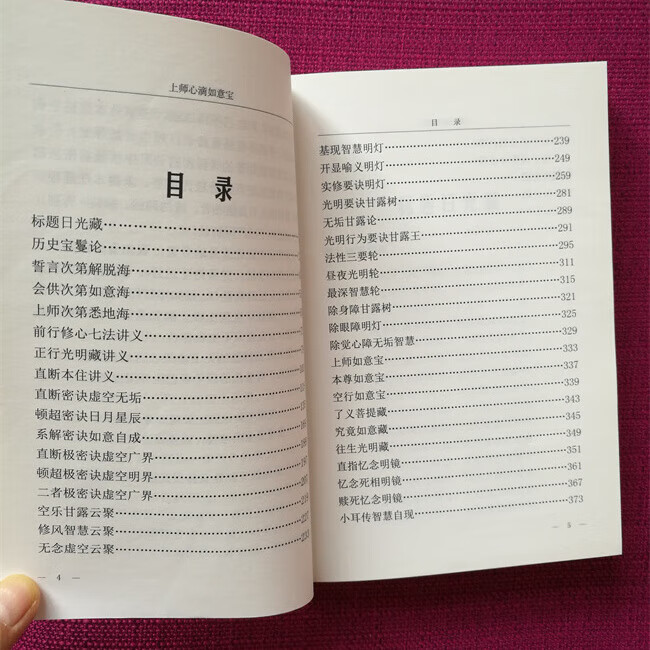 上师心滴如意宝
目录
标题日光藏
历史宝鬘论
誓言次第解脱海
会供次第如意海
上师次第悉地海
前行修心七法讲义
正行光明藏讲义
直断本住讲义
直断密诀虚空无垢
顿超密诀日月星辰
系解密诀如意自成
直断极密诀虚空广界
顿超极密诀虚空明界
二者极密诀虚空广界
空乐甘露云聚
修风智慧云聚
无念虚空云聚
— 4 —
目 录
基现智慧明灯 239
开显喻义明灯 249
实修要诀明灯 259
光明要诀甘露树 281
无垢甘露论 289
光明行为要诀甘露王 291
法性三要轮 295
昼夜光明轮 311
最深智慧轮 315
除身障甘露树 321
除眼障明灯 325
除觉心障无垢智慧 329
上师如意宝 333
本尊如意宝 337
空行如意宝 339
了义菩提藏 343
究竟如意藏 345
往生光明藏 349
直指忆念明镜 351
忆念死相明镜 361
赎死忆念明镜 367
小耳传智慧自现 373
— 5 —